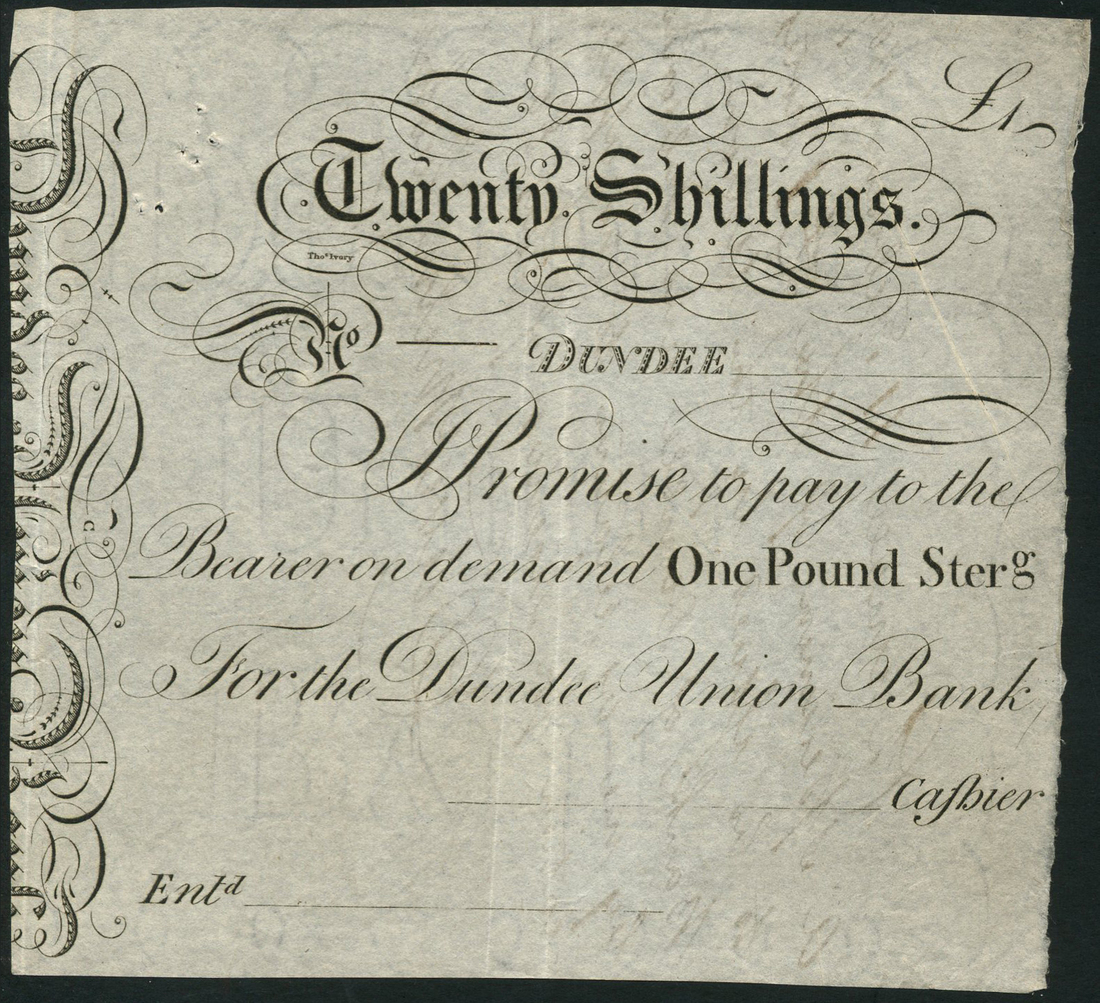 £1
Twenty Shillings.
Thos Ivory
No
DUNDEE
I Promise to pay to the
Bearer on demand One Pound Sterg
For the Dundee Union Bank
Caſhier
Entd